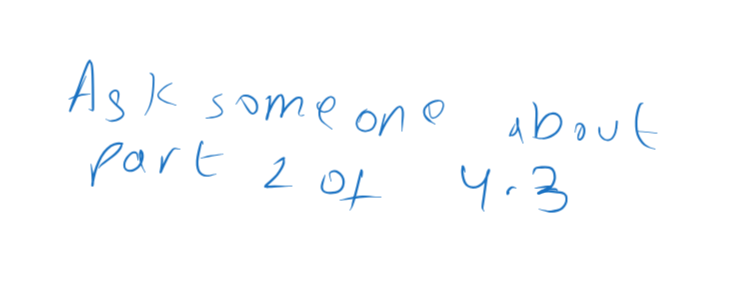 Ask someone about
part 2 of 4.3